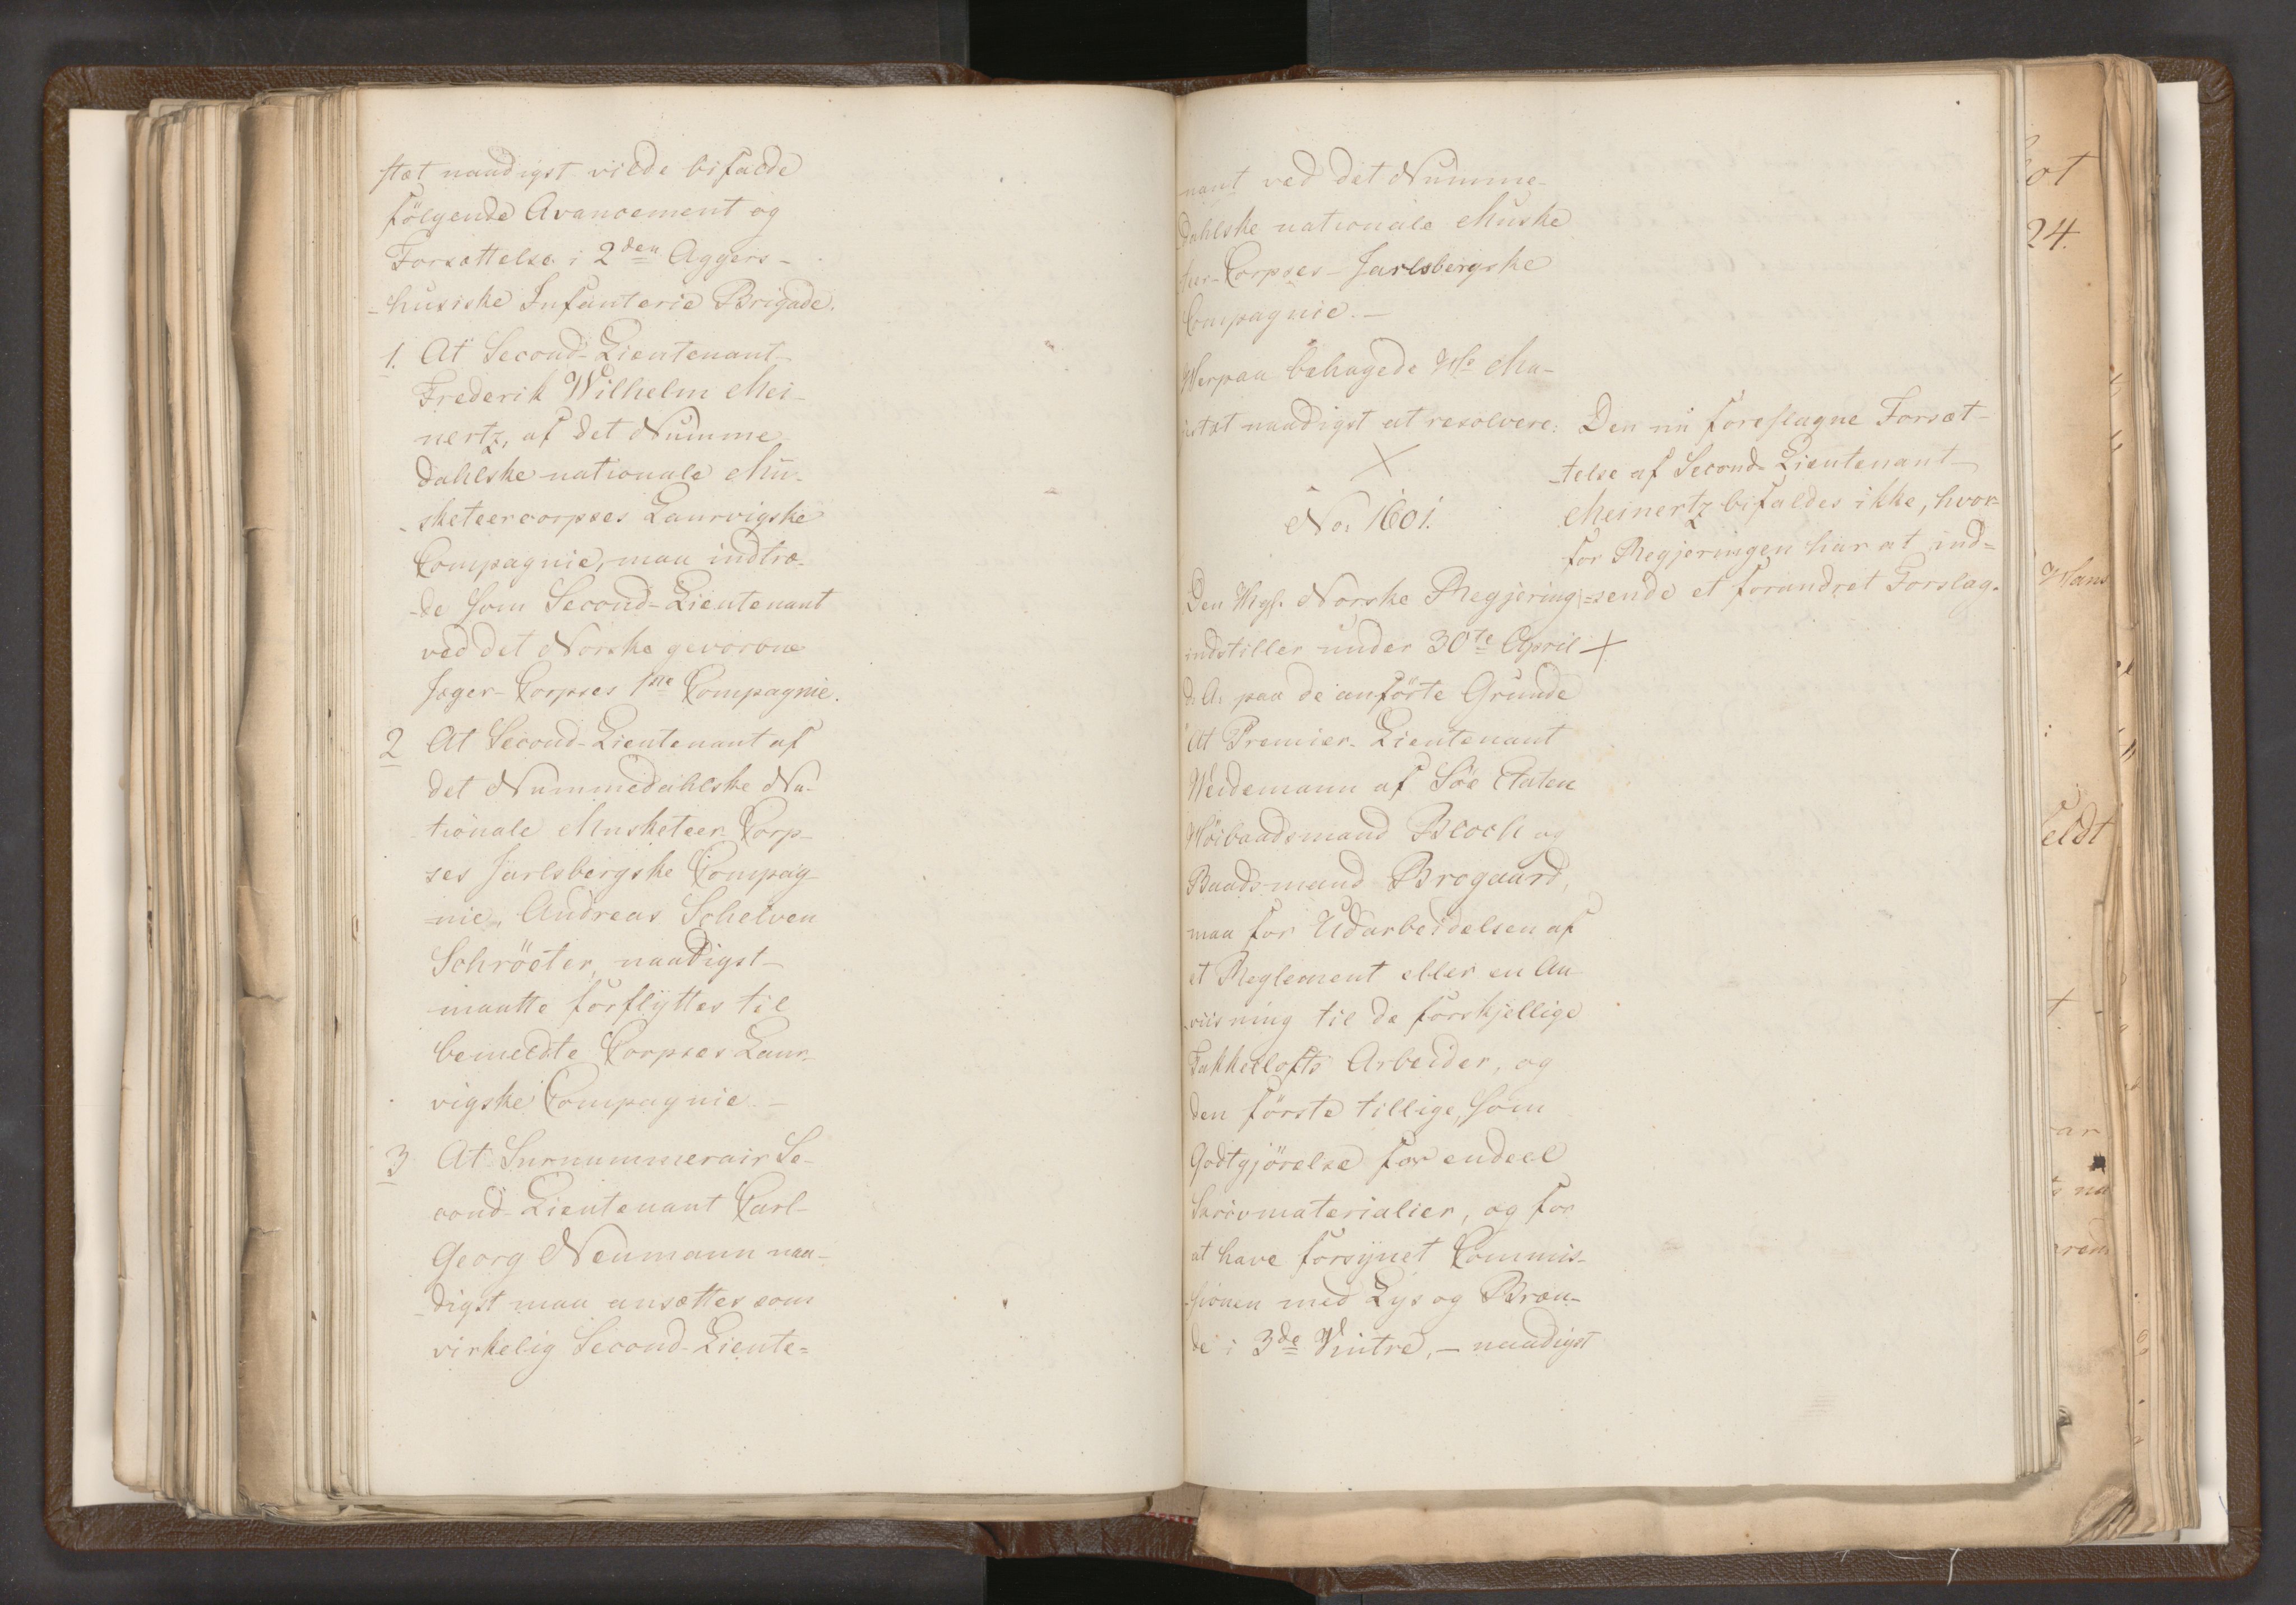 stæt naadigst vilde bifalde
fölgende Avancement og
Forsættelse i 2den Aggers-
-husiske Infanterie Brigade.
1. At Second-Lieutenant
Frederik Wilhelm Mei-
nertz, af det Numme-
dahlske nationale Mu-
-sketeercorpses Laurvigske
Compagnie, maa indtræ-
-de som Second-Lieutenant
ved det Norske gevorbne
Jæger-Corpses 1ne Compagnie.
2 At Second-Lieutenant af
det Nummedahlske Na-
tionale Musketeer Corp-
ses Jarlsbergske Compag-
=nie, Andreas Schelven
Schröeter, naadigst
maatte forflyttes til
bemeldte Corpses Laur-
vigske Compagnie. -
3 At Surnummerair Se-
cond-Lieutenant Carl
Georg Neumann naa-
-digst maa ansættes som
virkelig Second-Lieute=
nant ved det Numme-
dahlske nationale Muske
teer-Corpses-Jarlsbergske
Compagnie. -
Herpaa behagede Hs Ma-
jestæt naadigst at resolvere:
Den nu foreslagne Forsæt-
-telse af Second-Lieutenant
Meinertz bifaldes ikke, hvor-
for Regjeringen har at ind=
=sende et forandret Forslag.
+
X
No. 1601.
Den Kgl. Norske Regjering
indstiller under 30te April
d. A. paa de anförte Grunde
At Premier-Lieutenant
Weidemann af Söe Etaten
Höibaadsmand Bloch og
Baadsmand Brogaard,
maa for Udarbeidelsen af
et Reglement eller en An-
-viisning til de forskjellige
Takkellofts Arbeider, og
den förste tillige, som
Godtgjörelse for endeel
Skrivmaterialier, og for
at have forsynet Commis-
-sionen med Lys og Bræn-
de i 3de Vintre, - naadigst
24.